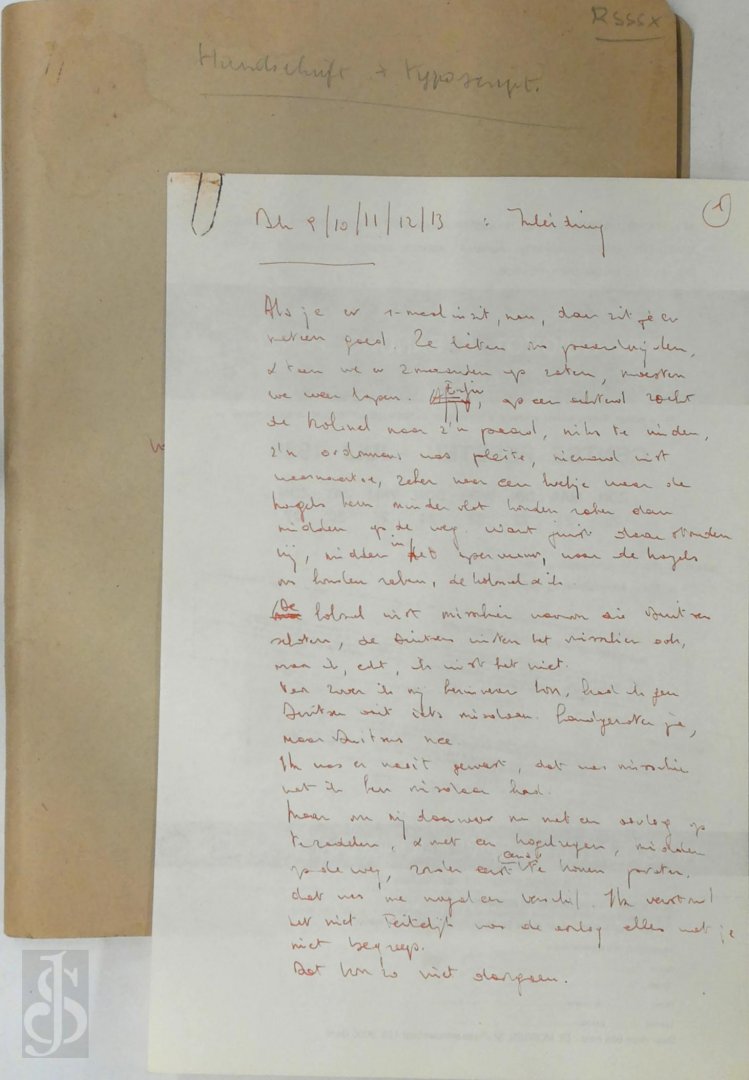 RSSSX
Handschrift + typoscript.
1
Blz 9/10/11/12/13 : Inleiding
Als je er 1-maal in zit, nou, dan zit je er
meteen goed. Ze lieten ons paardrijden,
& toen we er 2 maanden op zaten, moesten
we weer lopen. Enfin, op een ochtend zocht
de kolonel naar z'n paard, niks te vinden,
z'n ordonnans was pleite, niemand wist
waarnaartoe, zeker naar een hoekje waar de
kogels hem minder vlot konden raken dan
midden op de weg. Want juist daar stonden
wij, midden in het, waar de kogels
ons konden raken, de kolonel & ik.
De kolonel wist misschien waarom die Duitsers
schoten, de Duitsers wisten het misschien ook,
maar ik, echt, ik wist het niet.
Voor zover ik mij herinneren kon, had ik geen
Duitser ooit iets misdaan. Landgenoten ja,
maar Duitsers nee.
Ik was er nooit geweest, dat was misschien
wat ik hun misdaan had.
Maar om mij daarvoor nu met een oorlog op
te zadelen, & met een kogelregen, midden
op de weg, zonder eerst te komen praten,
dat was me nogal een verschil. Ik verstond
het niet. Feitelijk was de oorlog alles wat je
niet begreep.
Dat kon zo niet doorgaan.